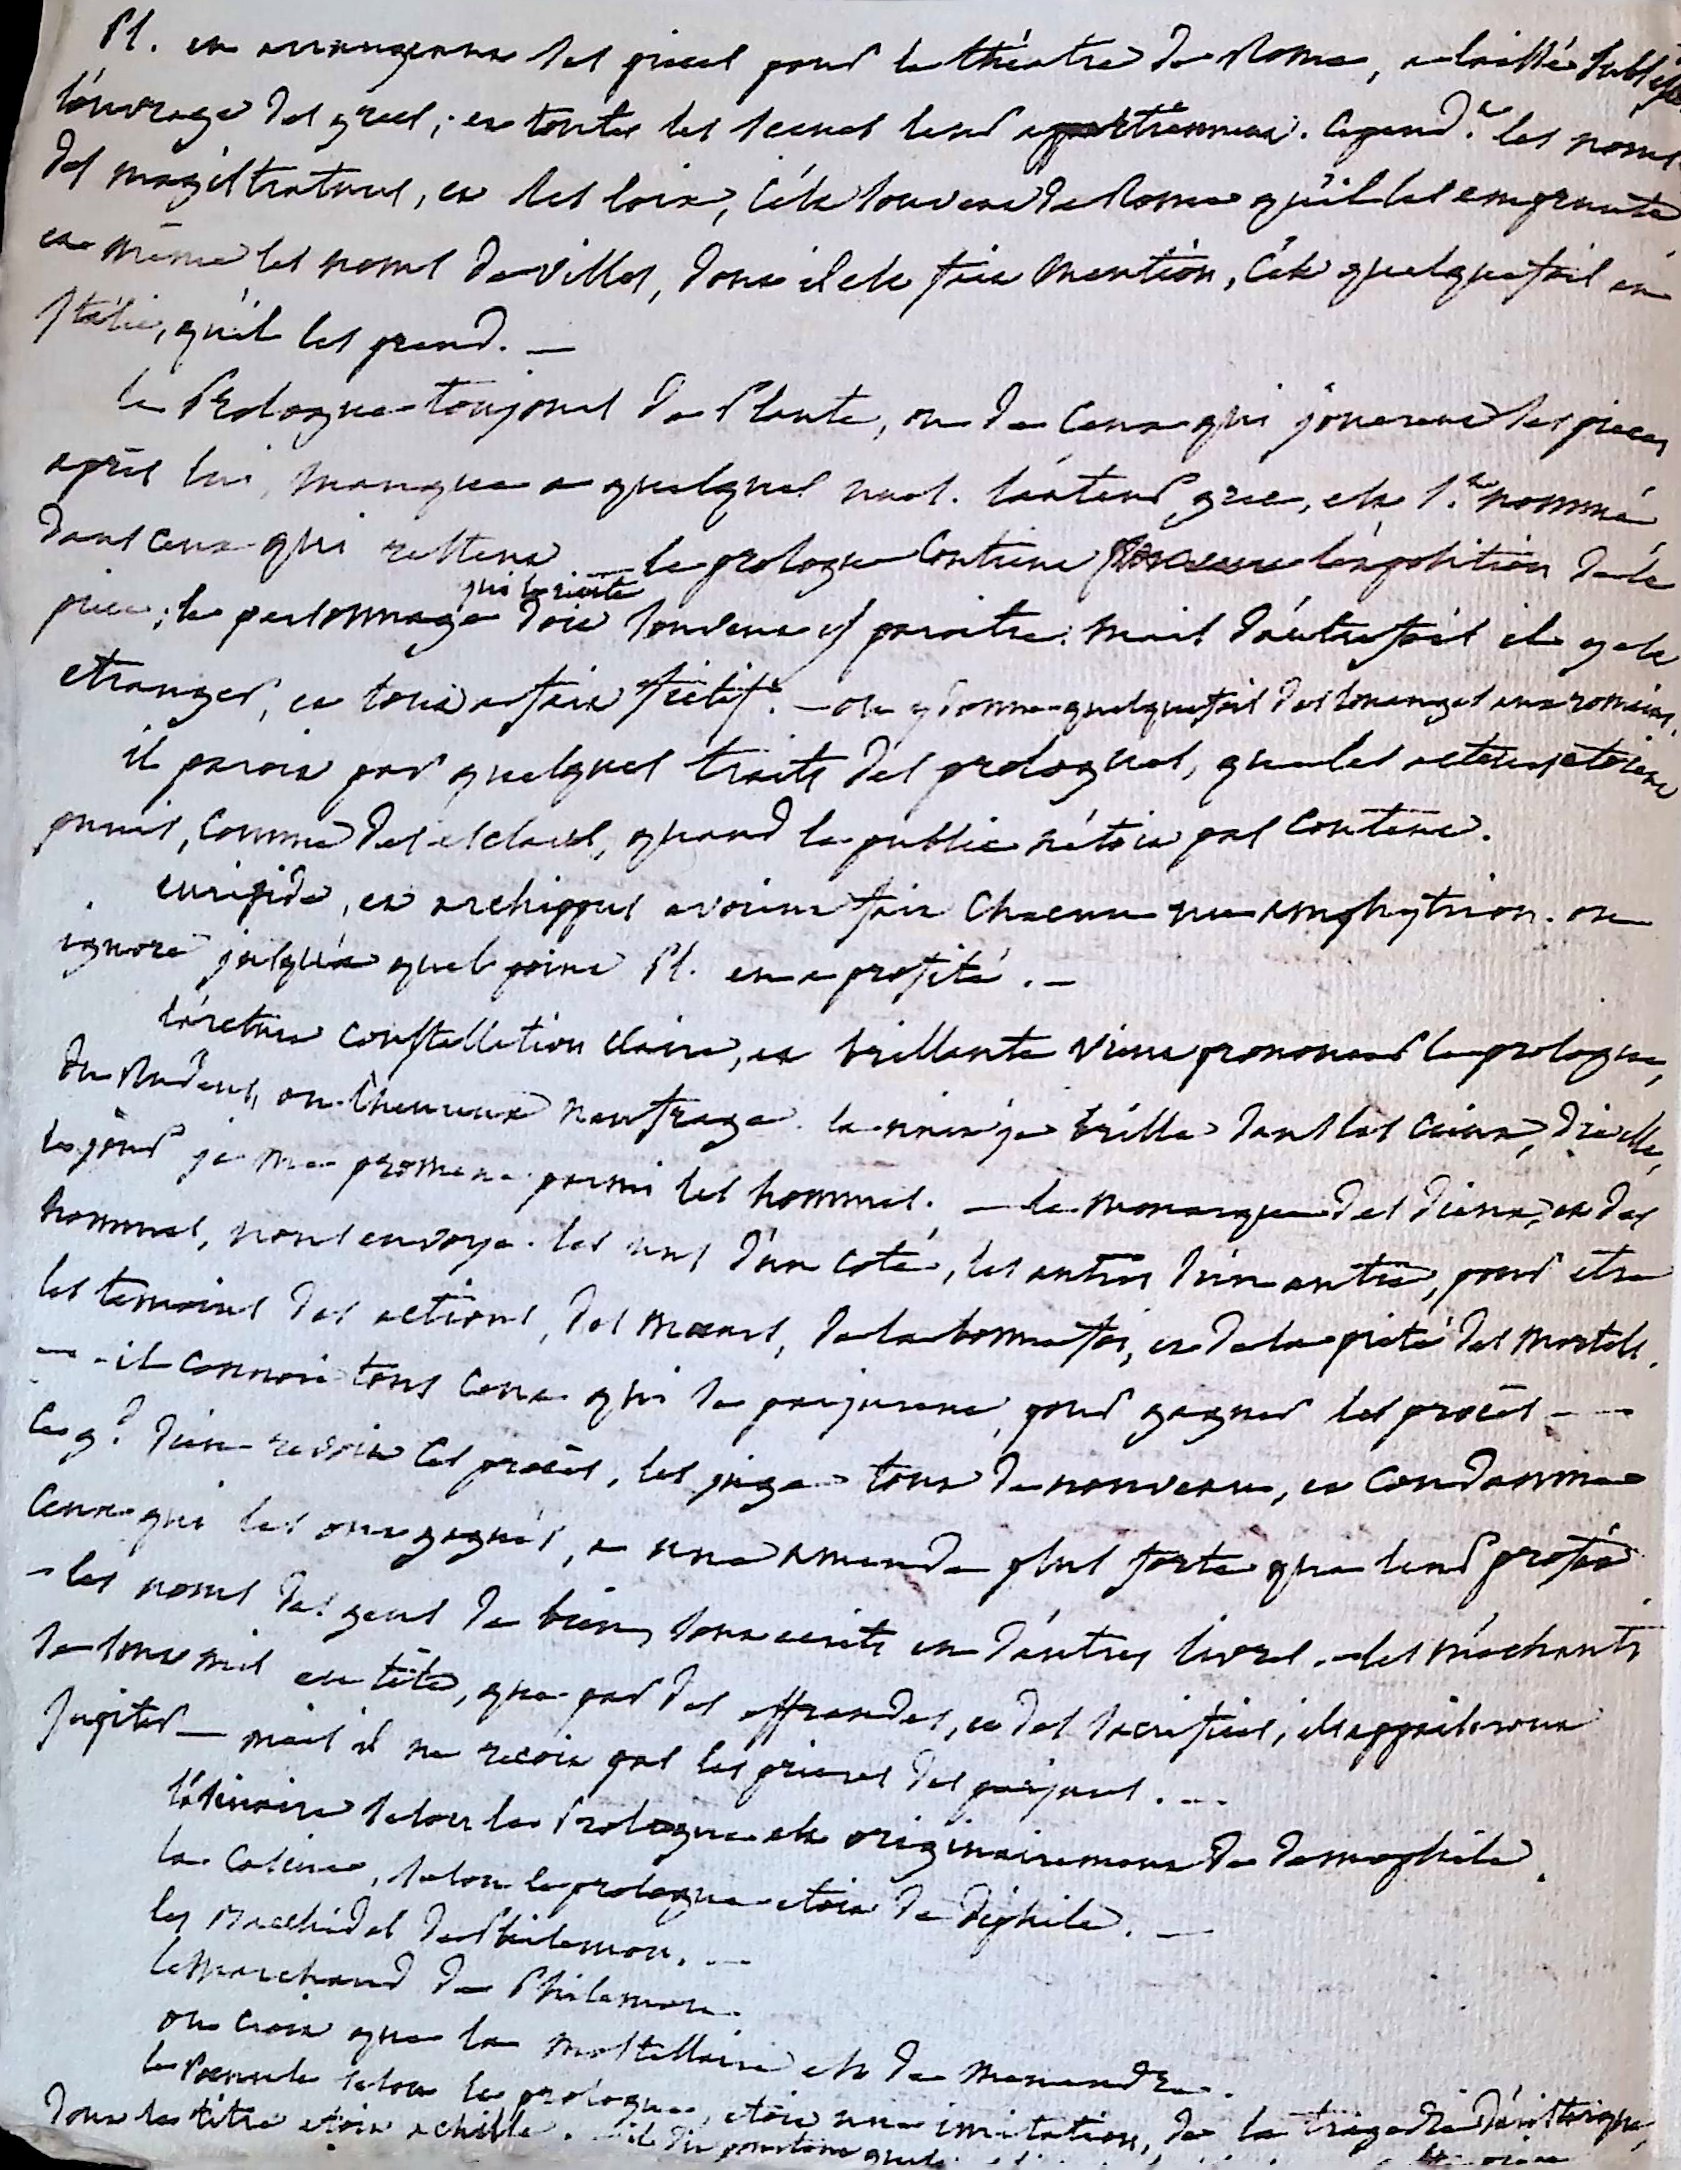 Pl. en arrangeant des pieces pour le théatre de Rome, a laissé subsister
l'ouvrage des grecs; et toutes les scenes leur appartiennent. cepend.t les noms
des magistratures, et des loix, c'est souvent de Rome qu'il les emprunte
et même les noms de villes, dont il est fait mention, c'est quelquefois en
Italie, qu'il les prend. —
le Prologue toujours de Plaute, ou de ceux qui jouerent ses pieces
après lui, manque a quelques unes. l'auteur grec, est s.t nommé
dans ceux qui restent — le prologue contient l'exposition de la
piece; le personnage qui le récite doit souvent y paroitre. mais d'autrefois il y est
etranger, et tout a fait fictif. — on y donne quelquefois des louanges aux romains.
il paroit par quelques traits des prologues, que les acteurs etoient
punis, comme des esclaves, quand le public n'étoit pas content.
euripide, et archippus avoient fait chacun un amphytrion. on
ignore jusqu'a quel point Pl. en a profité. —
l'arcture constellation claire, et brillante vient prononcer le prologue,
du Rudens, ou l'heureux naufrage. la nuit je brille dans les cieux, dit elle,
le jour je me promene parmi les hommes. — le monarque des dieux, et des
hommes, nous envoye. les uns d'un coté, les autres d'un autre, pour etre
les temoins des actions, des mœurs, de la bonne foi, et de la pieté des mortels.
— il connoit tous ceux qui se parjurent, pour gagner les procès — —
ce g.d dieu revoit ces procès, les juge tout de nouveau, et condamne
ceux qui les ont gagnés, a une amende plus forte que leur profit
— les noms des gens de bien, sont ecrits en d'autres livres. — les méchants
se sont mis en tête, que par des offrandes, et des sacrifices, ils appaiseront
Jupiter — mais il ne recoit pas les prieres des parjures. —
l'Asinaire selon le Prologue est originairement de demophile.
la Casine, selon le prologue etoit de diphile. —
les de Philemon. —
le Marchand de Philemon.
on croit que la mostellaire est de menandre.
le Pœnule selon le prologue, etoit une imitation, de la tragedie d'aristarque,
dont le titre etoit achille. — il dit pourtant que